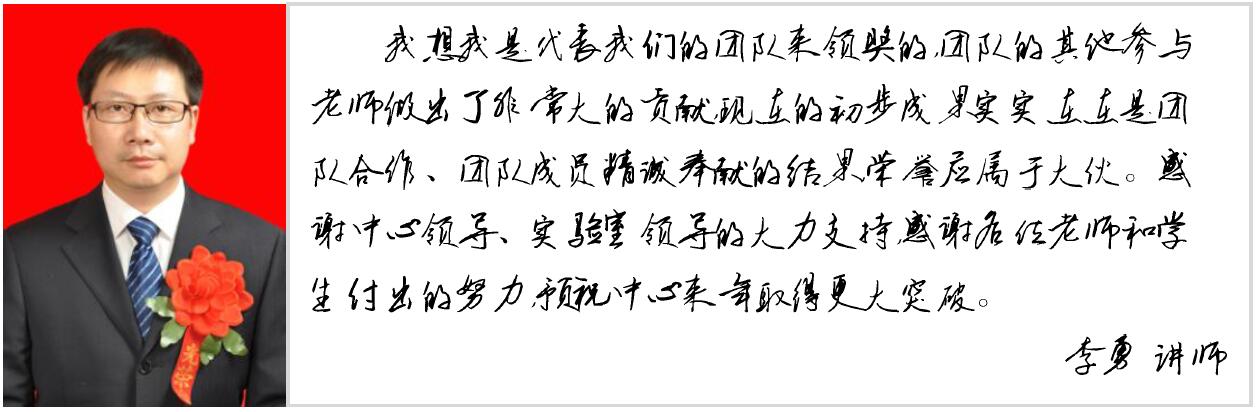 我想我是代表我们的团队来领奖的,团队的其他参与
老师做出了非常大的贡献,现在的初步成果实实在在是团
队合作、团队成员精诚奉献的结果,荣誉应属于大伙。感
谢中心领导、实验室领导的大力支持,感谢各位老师和学
生付出的努力,预祝中心来年取得更大突破。
李勇 讲师
光荣